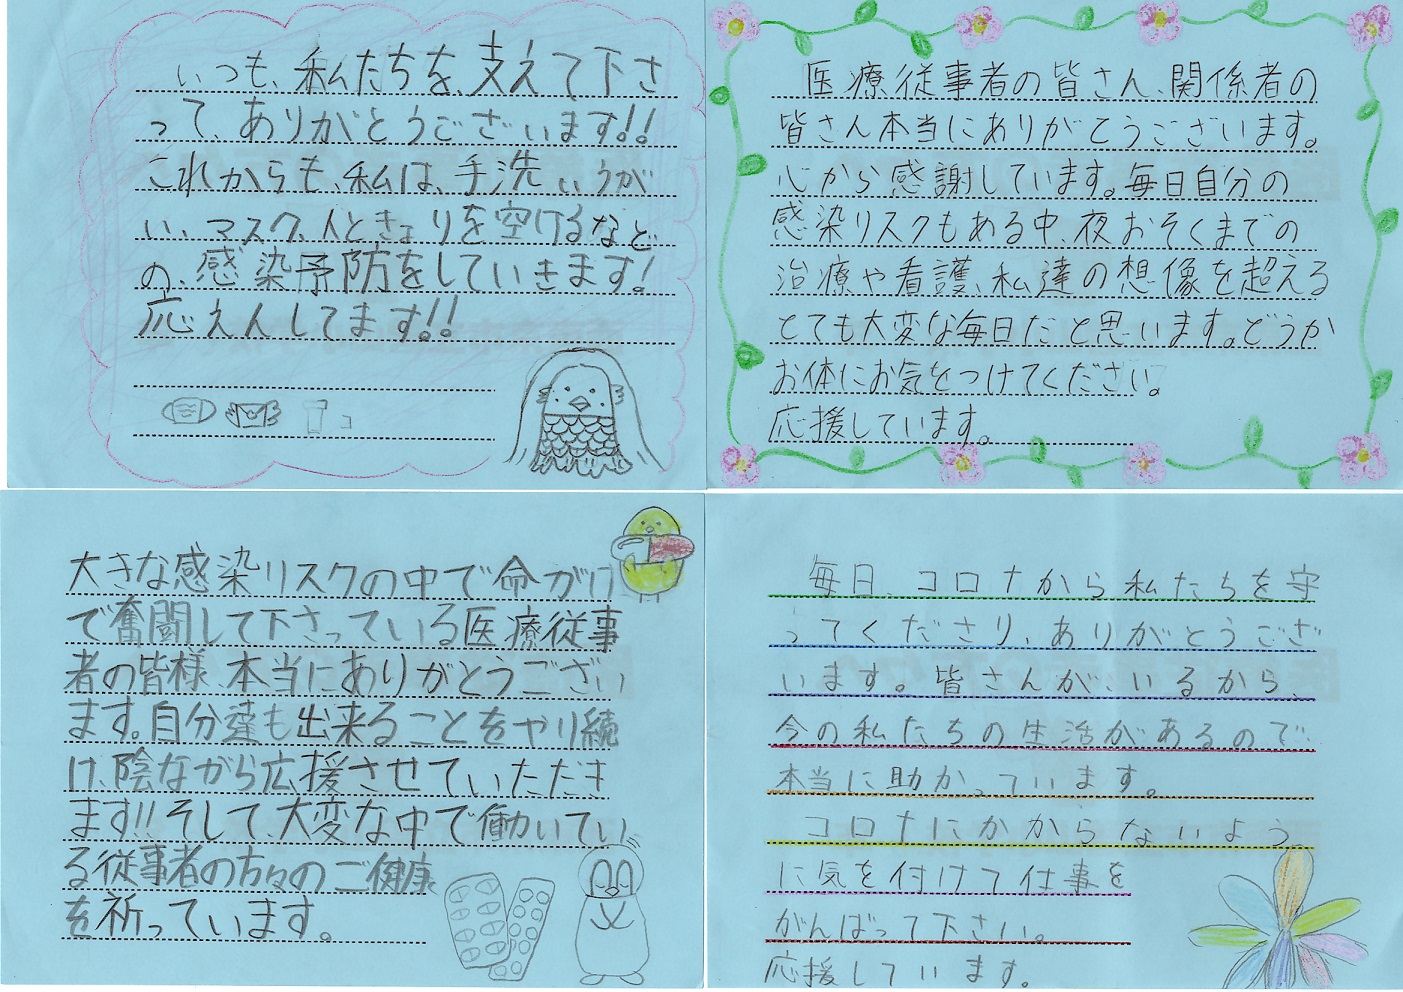 いつも、私たちを、支えて下さ
って、ありがとうございます!!
これからも、私は、手洗い、うが
い、マスク、人ときょりを空けるなど
の、感染予防をしていきます!
応えんしてます!!
医療従事者の皆さん、関係者の
皆さん本当にありがとうございます。
心から感謝しています。毎日自分の
感染リスクもある中、夜おそくまでの
治療や看護、私達の想像を超える
とても大変な毎日だと思います。どうか
お体にお気をつけてください。
応援しています。
大きな感染リスクの中で命がけ
で奮闘して下さっている医療従事
者の皆様、本当にありがとうござい
ます。自分達も出来ることをやり続
け、陰ながら応援させていただき
ます!!そして、大変な中で働いてい
る従事者の方々のご健康
を祈っています。
毎日、コロナから私たちを守
ってくださり、ありがとうござ
います。皆さんが、いるから、
今の私たちの生活があるので、
本当に助かっています。
コロナにかからないよう
に気を付けて仕事を
がんばって下さい。
応援しています。